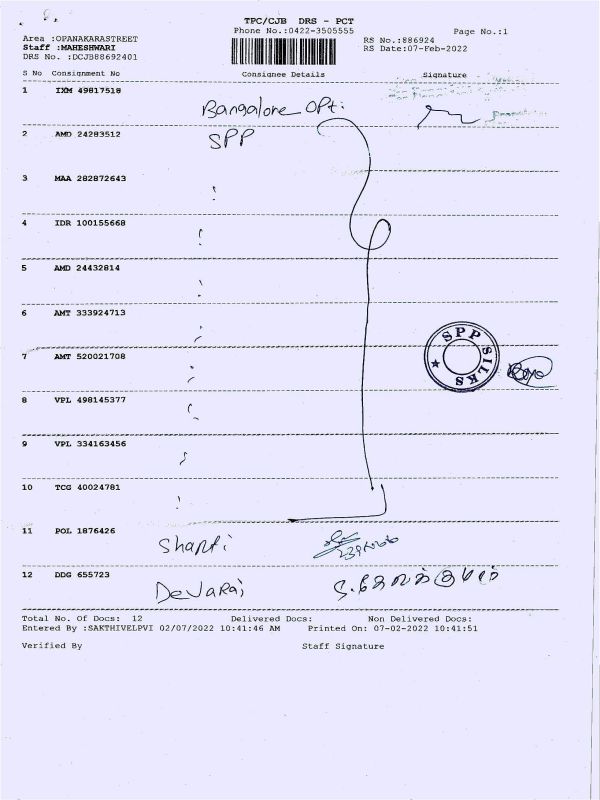 TPC/CJB DRS - PCT
Phone No.:0422-3505555 Page No.:1
Area :OPANAKARASTREET RS No.:886924
Staff :MAHESHWARI RS Date:07-Feb-2022
DRS No. :DCJB88692401
S No Consignment No Consignee Details Signature
1 IXM 49817518 Bangalore OPt.
2 AMD 24283512 SPP
3 MAA 282872643
4 IDR 100155668
5 AMD 24432814
6 AMT 333924713
7 AMT 520021708
SPP SILKS
8 VPL 498145377
9 VPL 334163456
10 TCG 40024781
11 POL 1876426 Shanti
12 DDG 655723 Devaraj
Total No. Of Docs: 12 Delivered Docs: Non Delivered Docs:
Entered By :SAKTHIVELPVI 02/07/2022 10:41:46 AM Printed On: 07-02-2022 10:41:51
Verified By Staff Signature